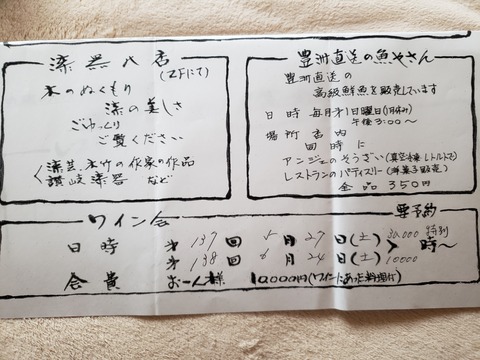 漆器八店
(2Fにて)
木のぬくもり
漆の美しさ
ごゆっくり
ご覧ください
漆芸、木竹の作家の作品
讃岐漆器 など
豊洲直送の魚やさん
豊洲直送の
高級鮮魚を販売しています
日時 毎月オ1日曜日(1月休み)
午後3:00〜
場所 店内
同時に
アンジェのそうざい(真空冷凍レトルトで)
レストランのパティスリー(洋菓子販売)
全品 350円
ワイン会
要予約
日時 オ137回 5月27日(土) 30,000 特別
オ138回 6月24日(土) 10000 時〜
会費 お一人様 10,000円(ワインにあった料理付)